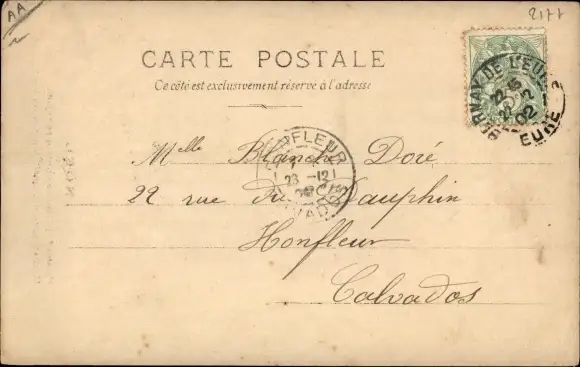 AA
2177
CARTE POSTALE
Ce côté est exclusivement réservé à l'adresse
BERNAY DE L'EURE
22 12 02
EURE
Melle Blanche Doré
HONFLEUR
23 -12
CALVADOS
22 rue du Dauphin
Honfleur
Calvados